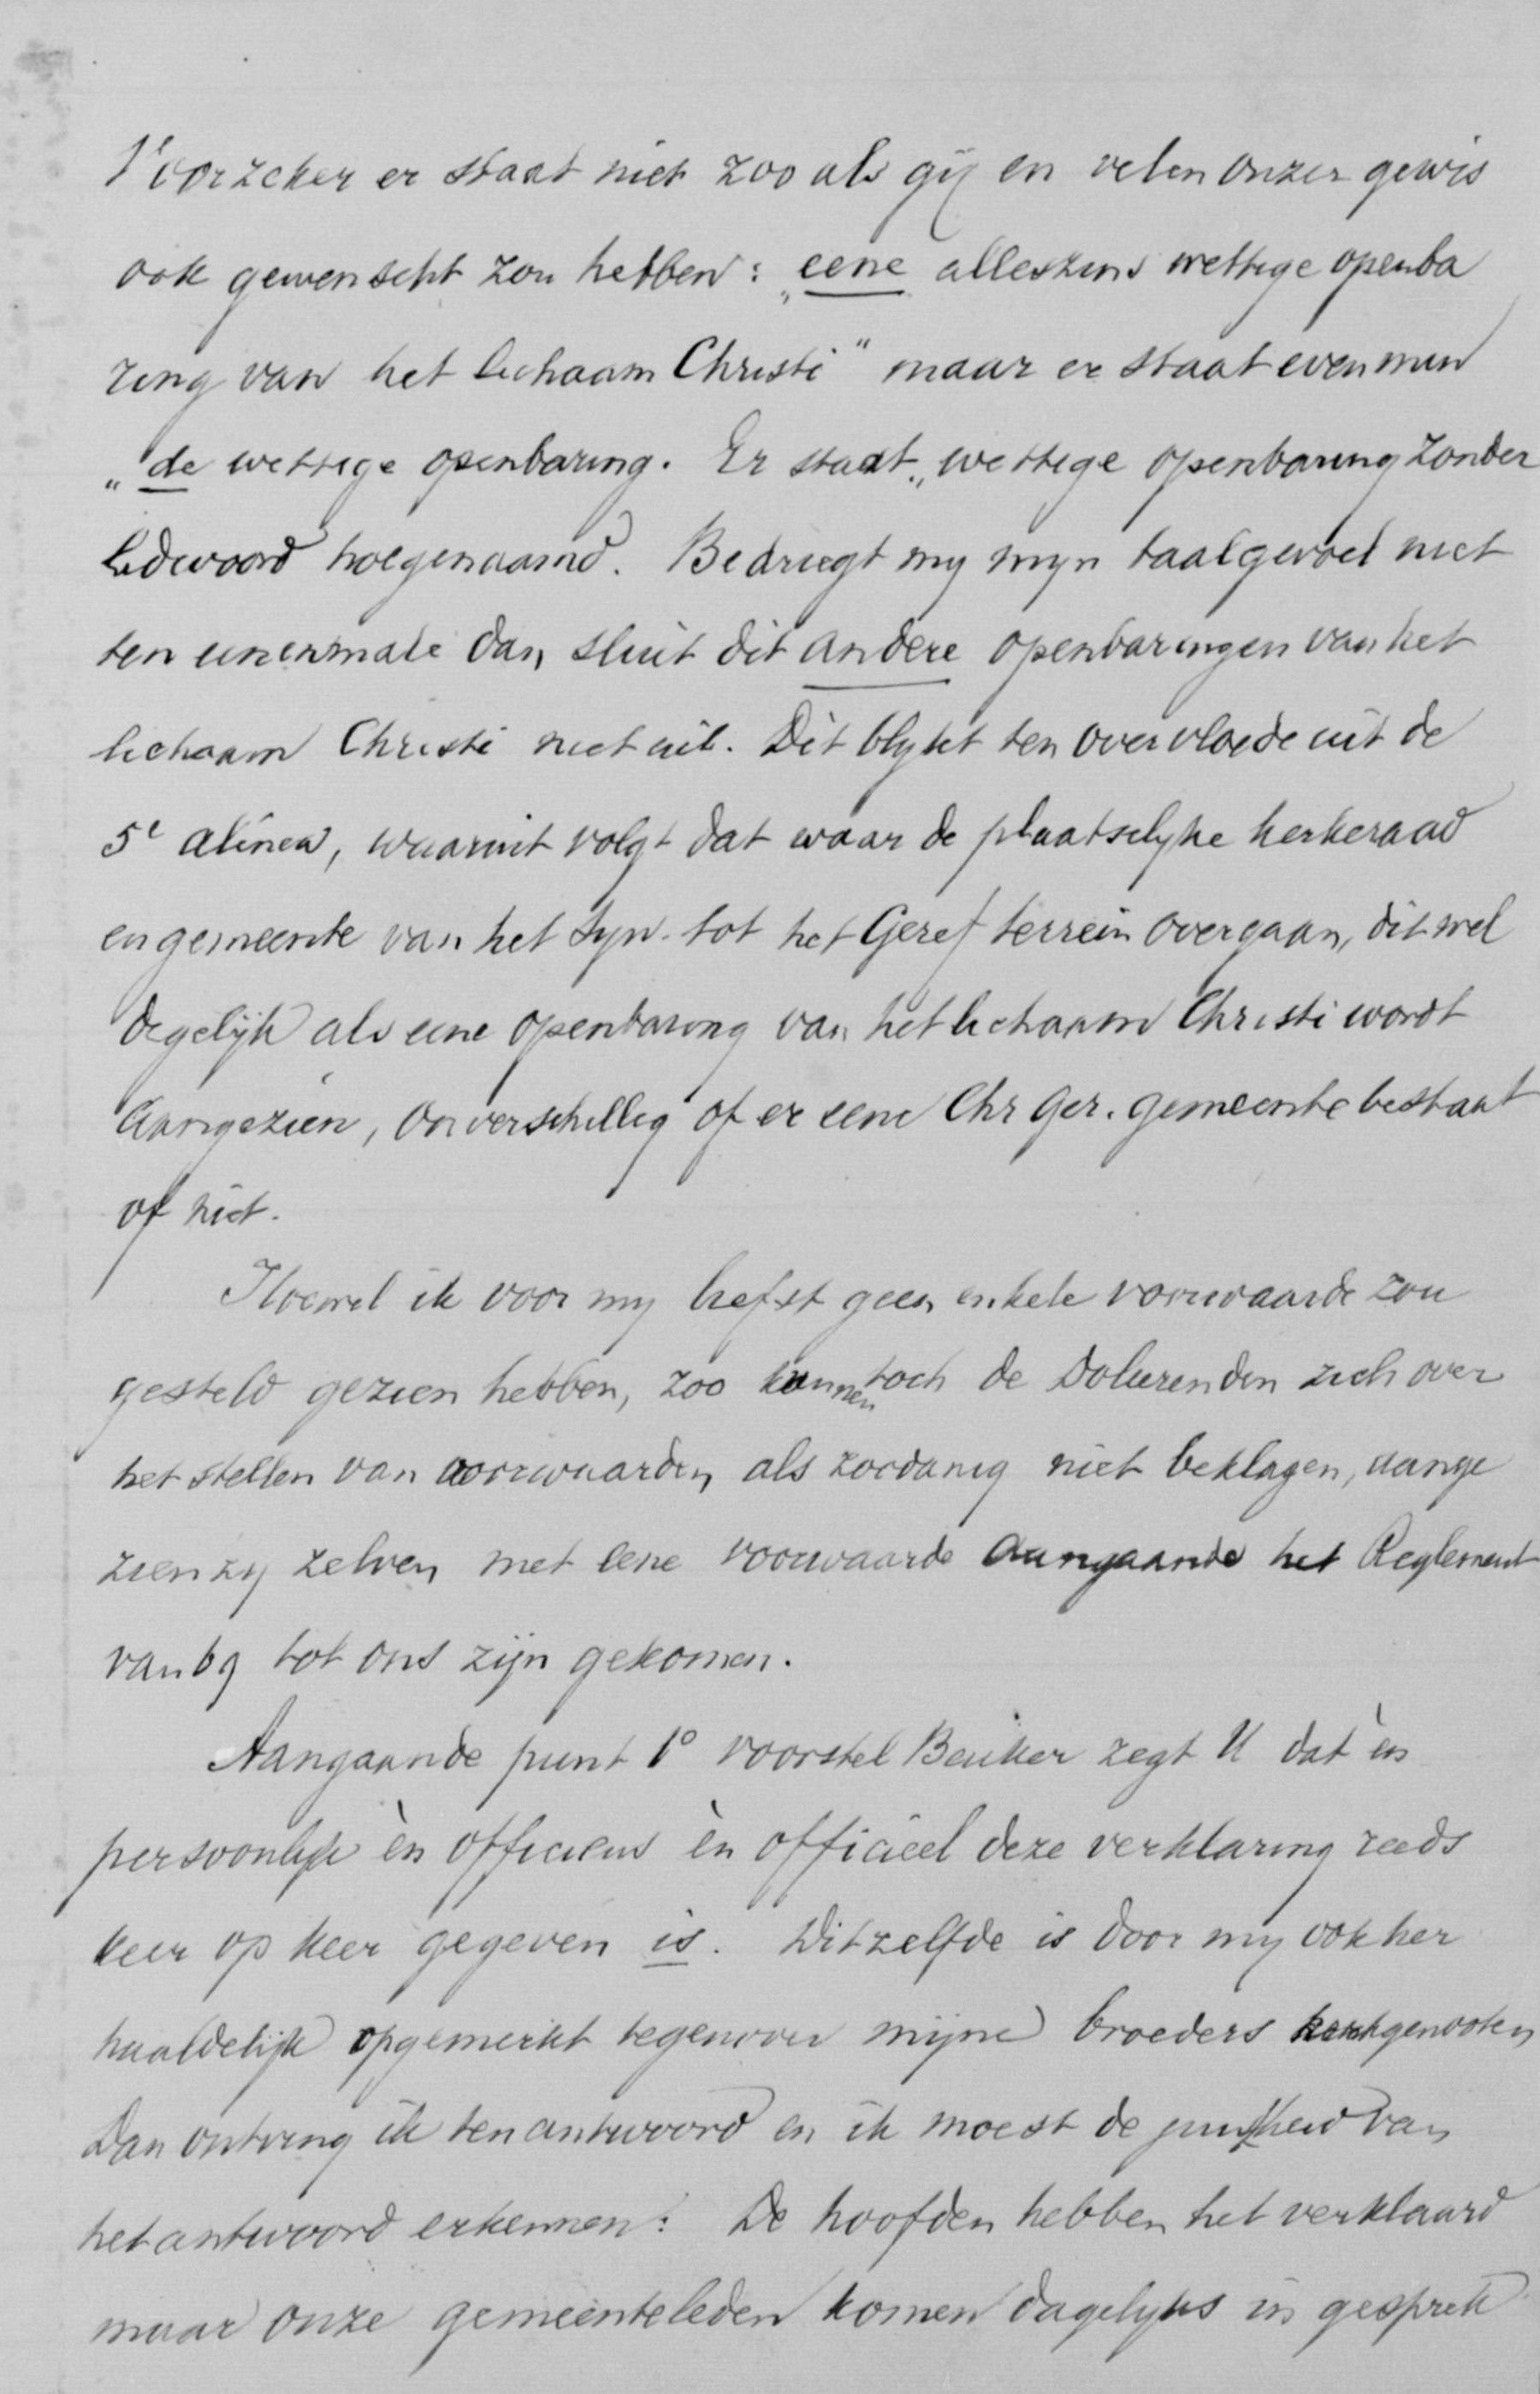 Voorzeker er staat niet zoo als gij en velen onzer gewis
ook gewenscht zou hebben: „eene alleszins wettige openba
ring van het lichaam Christi" maar er staat evenmin
„de wettige openbaring. Er staat „wettige openbaring zonder
lidwoord hoegenaamd. Bedriegt my myn taalgevoel niet
ten eenenmale dan sluit dit andere openbaringen van het
lichaam Christi niet uit. Dit blykt ten overvloede uit de
5e alinea, waaruit volgt dat waar de plaatselyke kerkeraad
en gemeente van het Syn. tot het Geref terrein overgaan, dit wel
degelijk als eene openbaring van het lichaam Christi wordt
aangezien, onverschillig of er eene Chr Ger. gemeente bestaat
of niet.
Hoewel ik voor my liefst geen enkele voorwaarde zou
gesteld gezien hebben, zoo kunnen toch de Doleerenden zich over
het stellen van voorwaarden als zoodanig niet beklagen, aange
zien zy zelven met eene voorwaarde aangaande het Reglement
van 69 tot ons zijn gekomen.
Aangaande punt 1° voorstel Beuker zegt U dat èn
persoonlijk èn officieus èn officieel deze verklaring reeds
keer op keer gegeven is. Ditzelfde is door my ook her
haaldelijk opgemerkt tegenover mijne broeders kerkgenooten
Dan ontving ik ten antwoord en ik moest de juistheid van
het antwoord erkennen: De hoofden hebben het verklaard
maar onze gemeenteleden komen dagelyks in gesprek